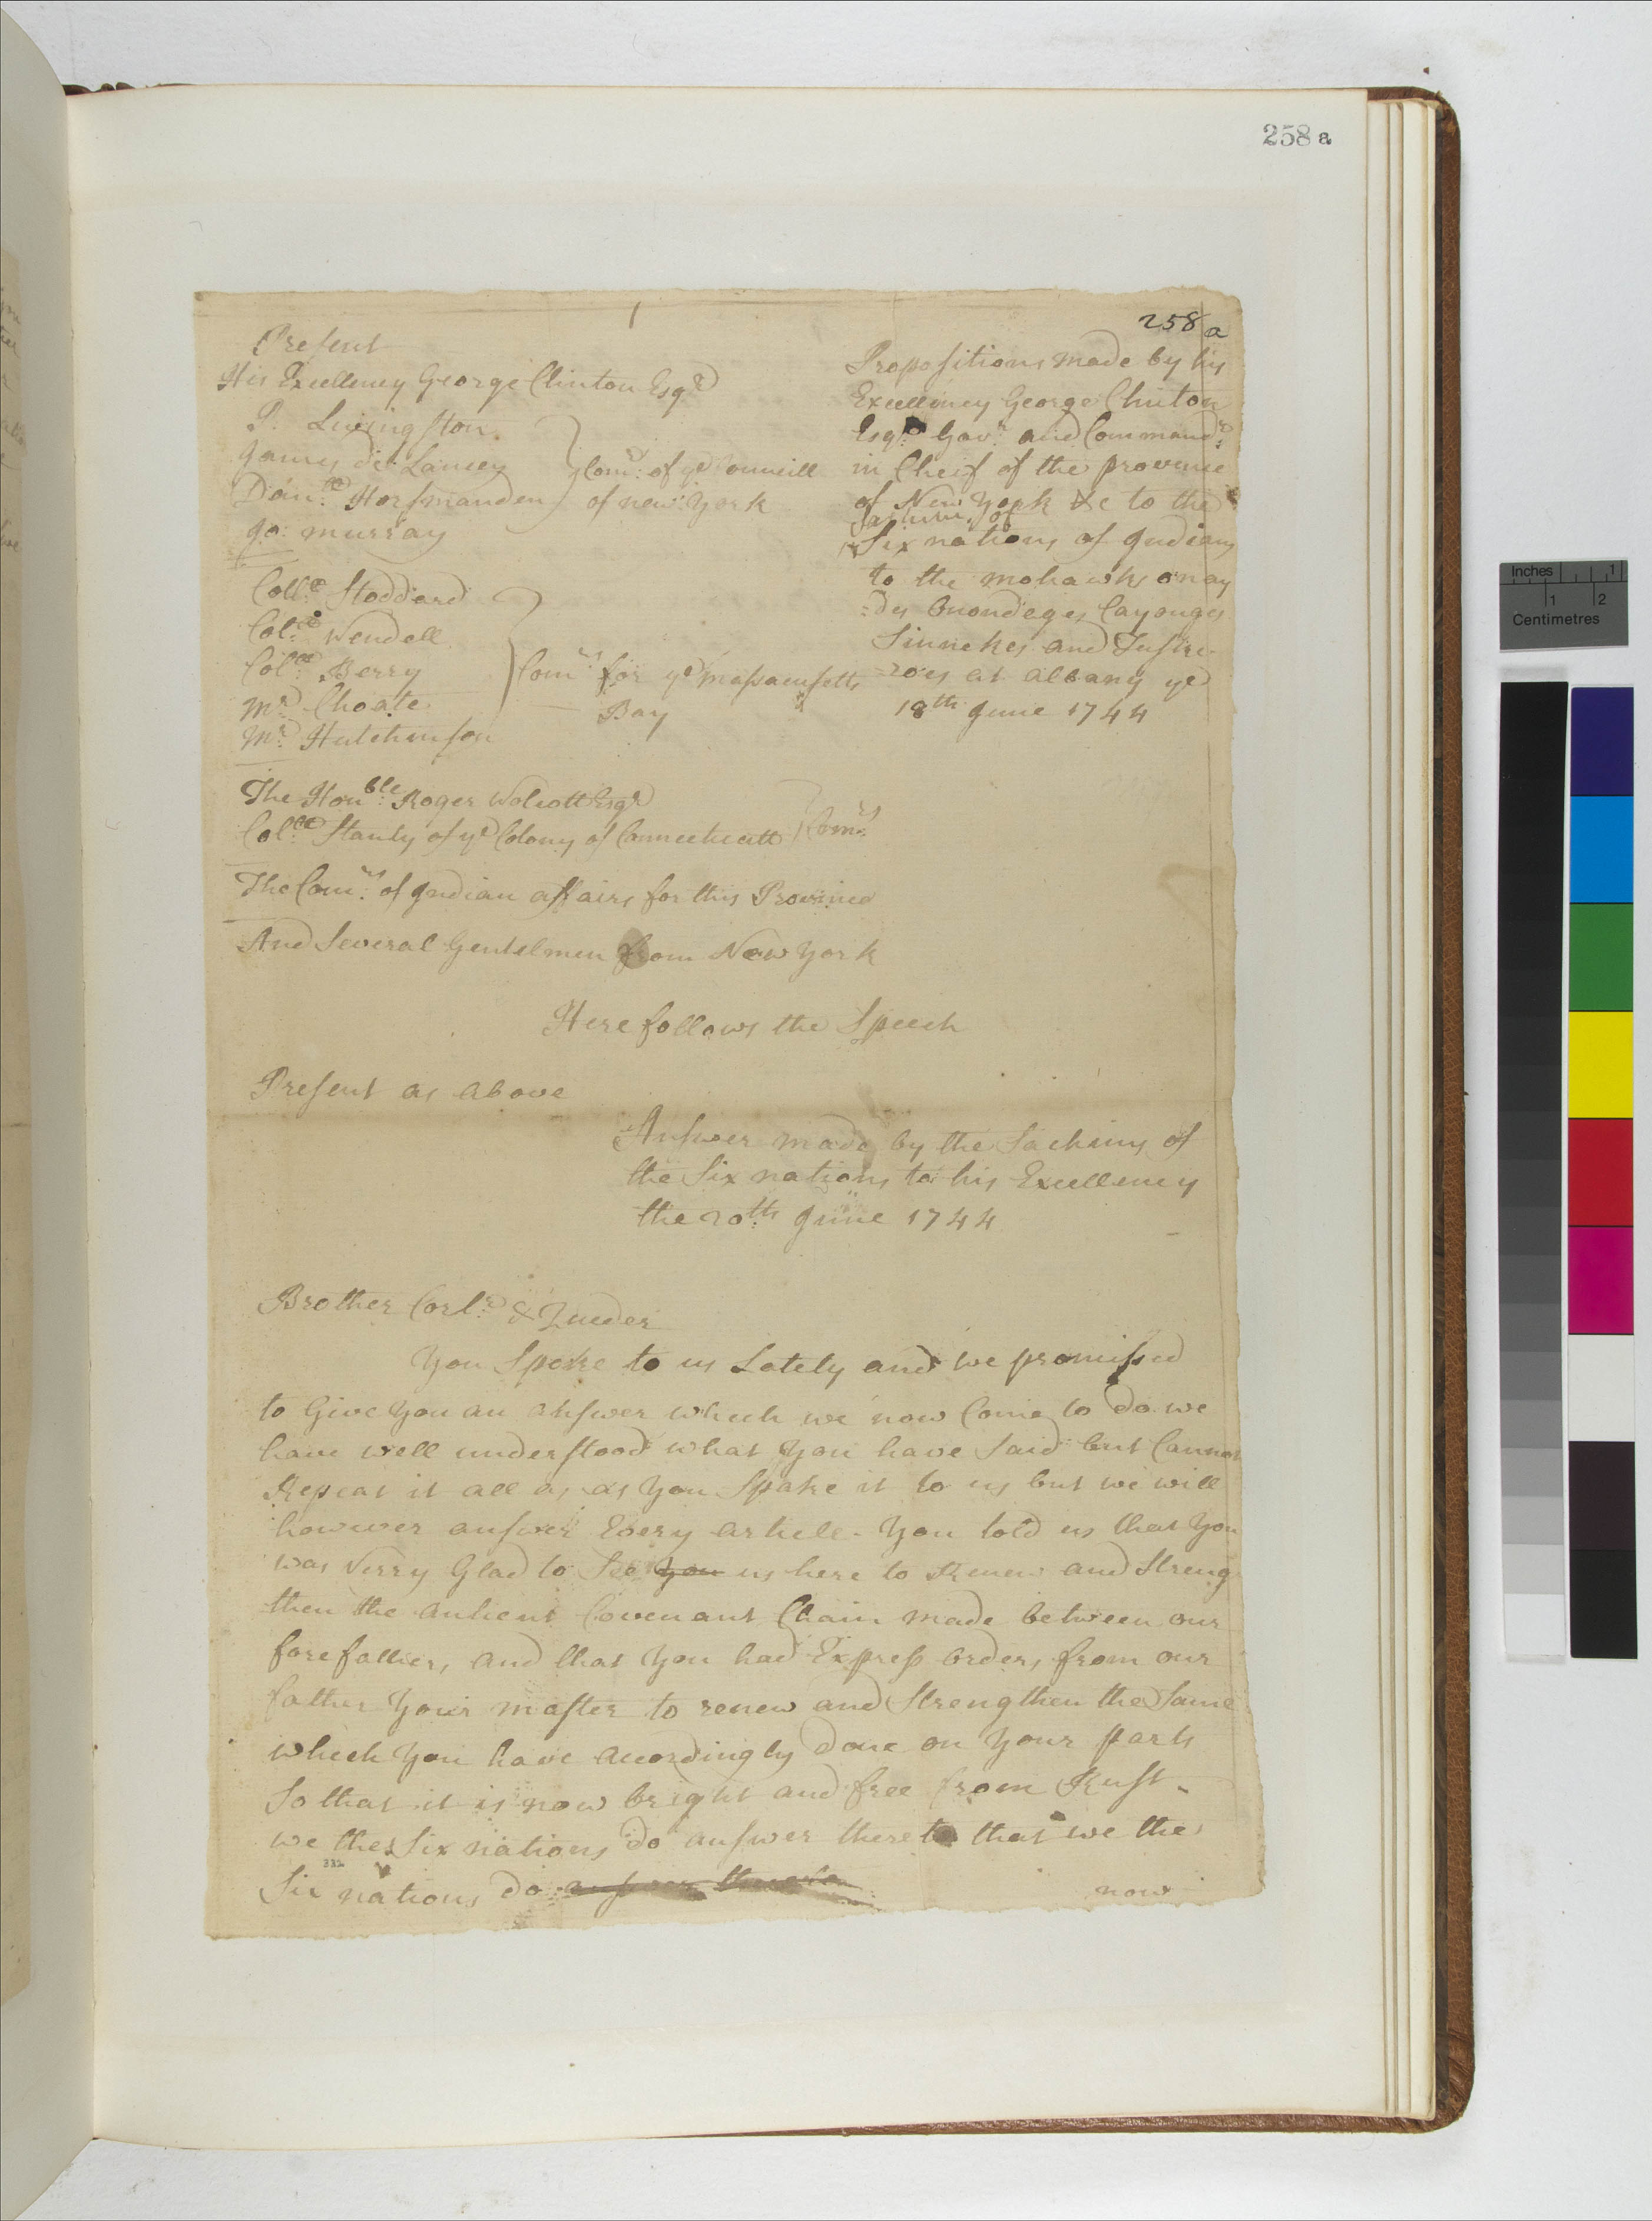 258 a
258 a
Present
His Excellency George Clinton Esqr
P. Livingston
James de Lancey
Danll Horsmanden
Jo: murray
Comrs: of ye Councill
of new York
Colle Stoddard
Colle Wendell
Colle Berry
Mr Choate
Mr Hutchinson
Comrs for ye massacusetts
Bay
The Honble: Roger Wolcott Esqr
Colle Stanly of ye Colony of Connecticutt
Comrs
The Comrs: of Indian affairs for this Province
And Several Gentelmen from New York
Propositions made by his
Excellency George Clinton
Esqr: Govr: and Commandr:
in Cheif of the province
of New York &c to the
Sachims of
Six nations of Indians
to the mohawks onay
=des Onondeges Cayouges
Sinnekes and Tuskc
=roes at albany ye
18th June 1744
Here follows the Speech
Present as above
Answer made by the Sachims of
the Six nations to his Excellency
the 20th June 1744
Brother Corlr & Queder
You Spoke to us Lately and we promissed
to Give You an answer which we now Come to do we
have well understood what You have Said but Cannot
Repeat it all as as You Spake it to us but we will
however answer Every article - You told us that You
was Verry Glad to See you us here to Renew and Streng
then the antient Covenant Chain made between our
forefathers, and that You had Express orders, from our
father Your master to renew and Strengthen the Same
which You have accordingly done on Your parts
So that it is now bright and free from Rust -
we the Six nations do answer thereto that we the
Six nations do answer thereto
now
Inches 1
1 2
Centimetres